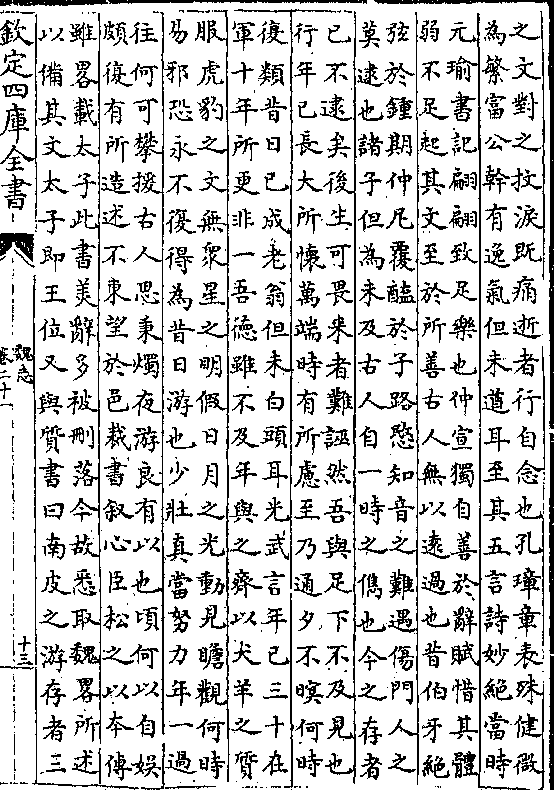 之文對之抆淚既痛逝者行自念也孔璋章表殊健微
為繁富公幹有逸氣但未遒耳至其五言詩妙絕當時
元瑜書記翩翩致足樂也仲宣獨自善於辭賦惜其體
弱不足起其文至於所善古人無以遠過也昔伯牙絕
弦於鍾期仲尼覆醢於子路愍知音之難遇傷門人之
莫逮也諸子但為未及古人自一時之儁也今之存者
已不逮矣後生可畏來者難誣然吾與足下不及見也
行年已長大所懷萬端時有所慮至乃通夕不暝何時
復類昔日已成老翁但未白頭耳光武言年已三十在
軍十年所更非一吾德雖不及年與之齊以犬羊之質
服虎豹之文無衆星之明假日月之光動見瞻觀何時
易邪恐永不復得為昔日游也少壯真當努力年一過
往何可攀援古人思秉燭夜游良有以也頃何以自娛
頗復有所造述不東望於邑裁書叙心臣松之以本傳
雖畧載太子此書美辭多被刪落今故悉取魏畧所述
以備其文太子即王位又與質書曰南皮之游存者三
欽定四庫全書
魏志
卷二十一
十三